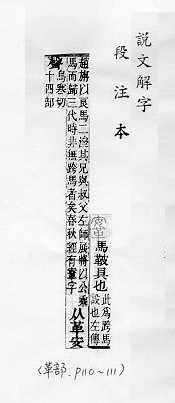 說文解字
段注本
馬鞁具也
此為跨馬
設也左傳
趙旃以良馬二濟其兄與叔父左師展將以公乘
馬而歸三代時非無跨馬者矣春秋經有鞌字
从革安
聲
烏寒切
十四部
(革部、P110~111)